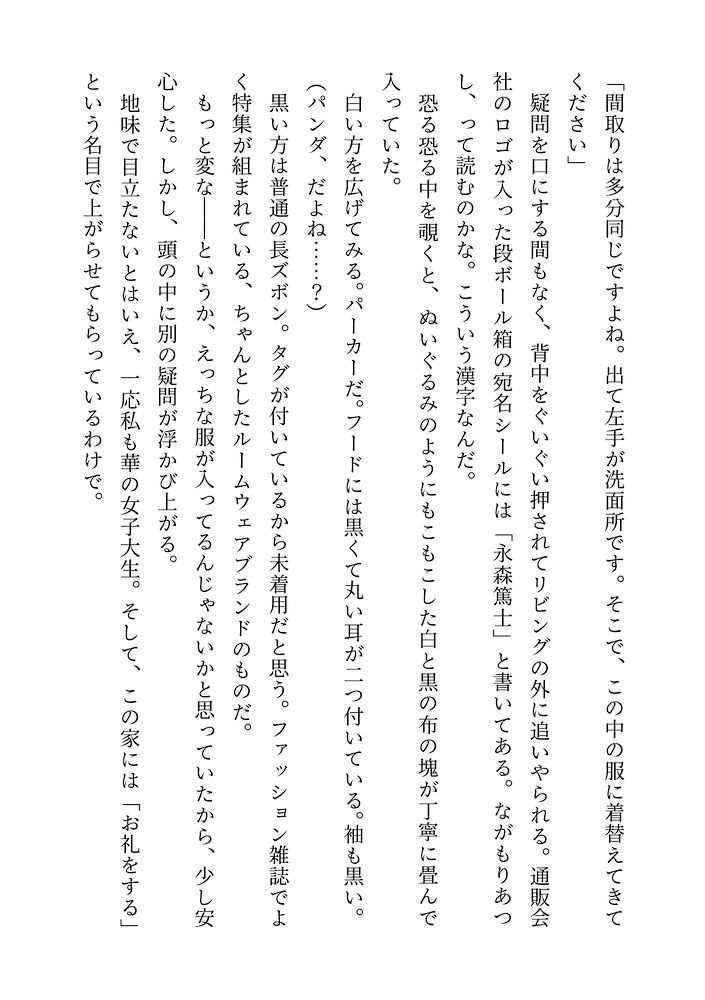 「間取りは多分同じですよね。出て左手が洗面所です。そこで、この中の服に着替えてきて
ください」
　疑問を口にする間もなく、背中をぐいぐい押されてリビングの外に追いやられる。通販会
社のロゴが入った段ボール箱の宛名シールには「永森篤士」と書いてある。ながもりあつ
し、って読むのかな。こういう漢字なんだ。
　恐る恐る中を覗くと、ぬいぐるみのようにもこもこした白と黒の布の塊が丁寧に畳んで
入っていた。
　白い方を広げてみる。パーカーだ。フードには黒くて丸い耳が二つ付いている。袖も黒い。
（パンダ、だよね……？）
　黒い方は普通の長ズボン。タグが付いているから未着用だと思う。ファッション雑誌でよ
く特集が組まれている、ちゃんとしたルームウェアブランドのものだ。
　もっと変な――というか、えっちな服が入ってるんじゃないかと思っていたから、少し安
心した。しかし、頭の中に別の疑問が浮かび上がる。
　地味で目立たないとはいえ、一応私も華の女子大生。そして、この家には「お礼をする」
という名目で上がらせてもらっているわけで。